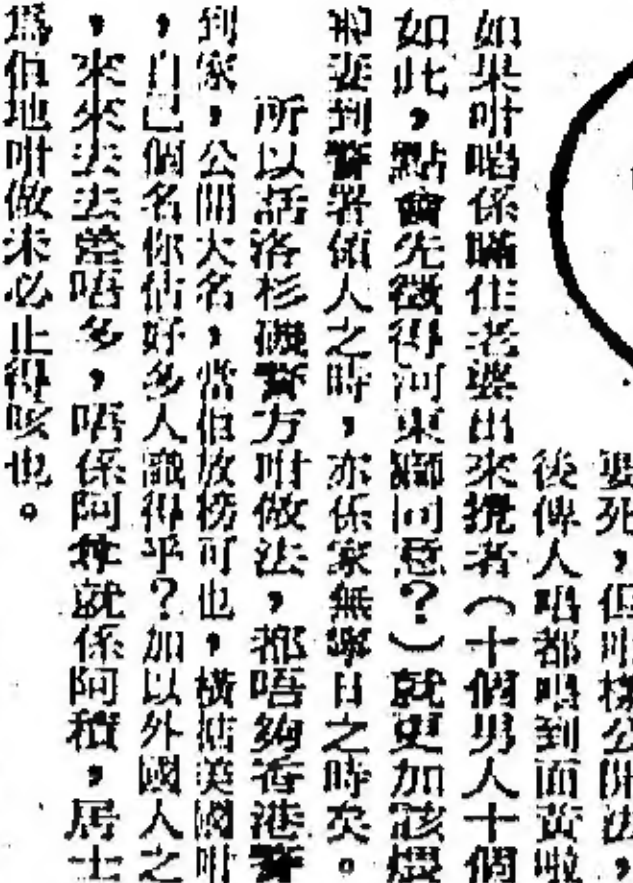 死,但咁樣公開法,
後俾人唱都唱到面黃啦
如果咁啱係瞞住老婆出來攪者(十個男人十個
如此,點會先徵得河東獅同意?)就更加該煨
妻到警署領人之時,亦係家無寧日之時矣。
所以話洛杉磯警方咁做法,都唔夠香港警
到家,公開大名,當佢放榜可也,橫掂美國咁
,自己個名你估好多人識得乎?加以外國人之
,來來去去唔多,唔係阿尊就係阿積,居士
爲佢地咁做未必止得咳也。